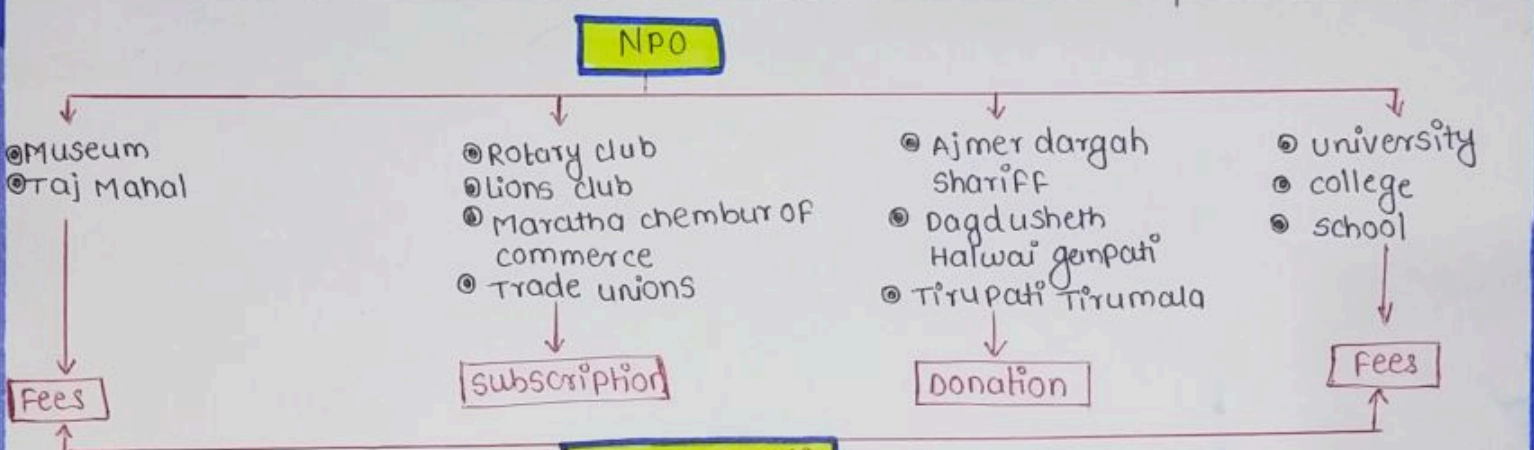 NPO
Museum
Taj Mahal
Fees
Rotary club
Lions club
Maratha chembur of
commerce
Trade unions
subscription
Ajmer dargah
shariff
Dagdusheth
Halwai ganpati
Tirupati Tirumala
Donation
university
college
school
Fees